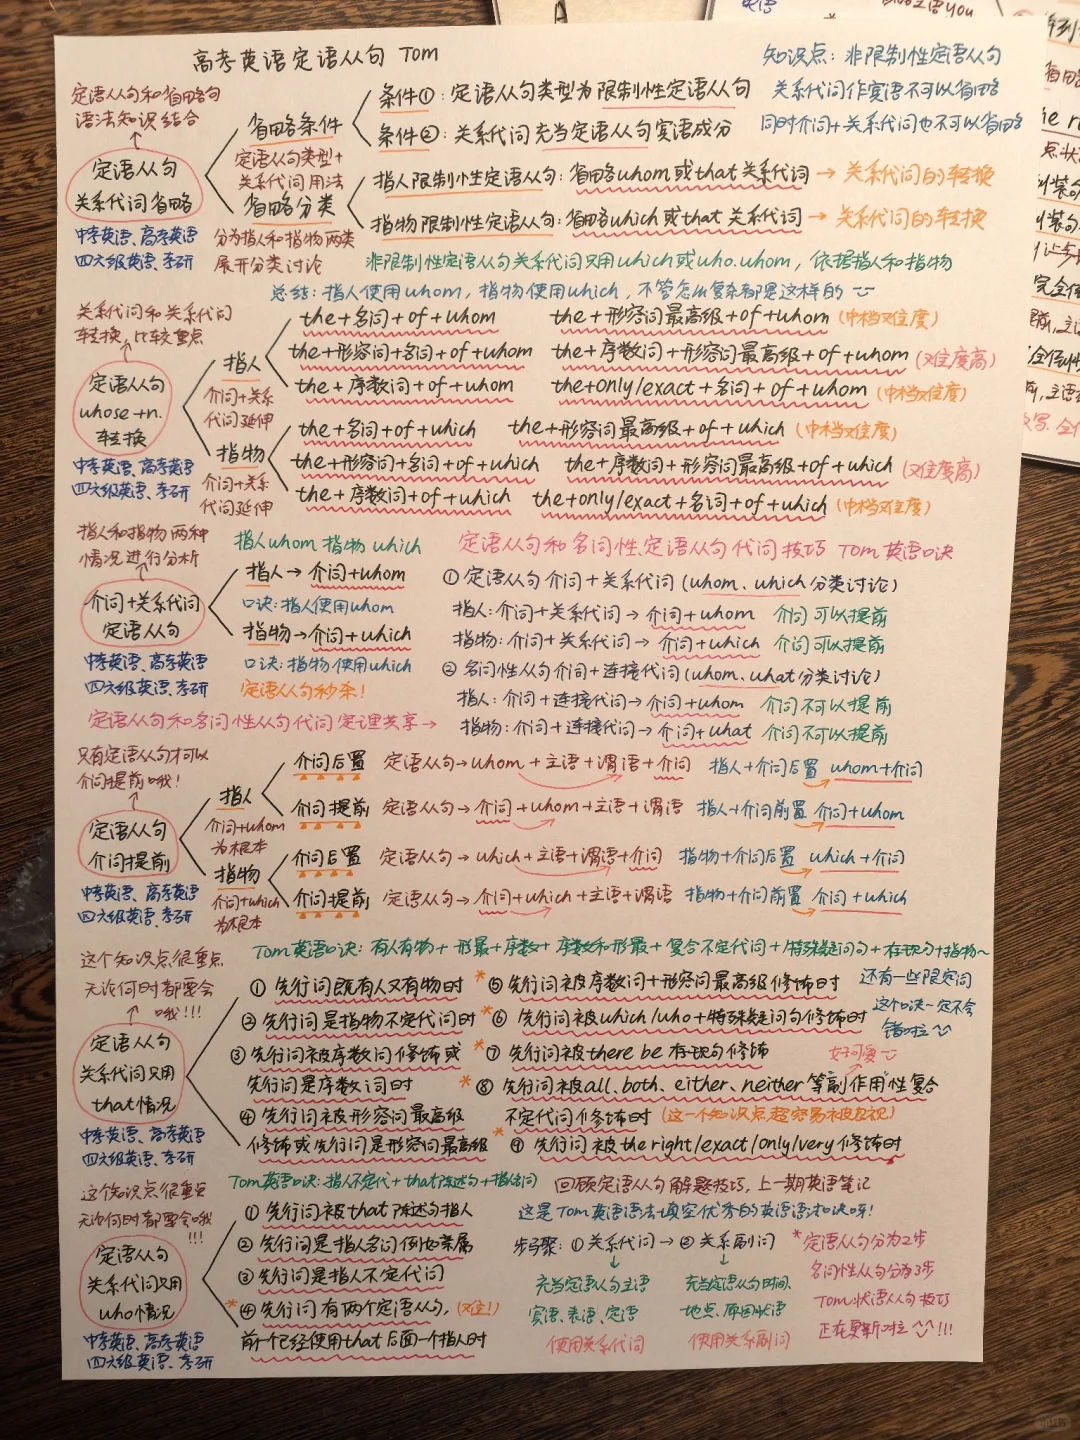 高考英语定语从句 Tom
知识点：非限制性定语从句
关系代词作宾语不可以省略
同时介词+关系代词也不可以省略
定语从句和省略句
语法知识结合
定语从句
关系代词省略
中考英语、高考英语
四六级英语、考研
省略条件
定语从句类型+
关系代词用法
省略分类
分为指人和指物两类
展开分类讨论
条件①：定语从句类型为限制性定语从句
条件②：关系代词充当定语从句宾语成分
指人限制性定语从句：省略whom或that关系代词→关系代词的转换
指物限制性定语从句：省略which或that关系代词→关系代词的转换
非限制性定语从句关系代词只用which或who.whom，依据指人和指物
总结：指人使用whom，指物使用which，不管怎么复杂都是这样的
关系代词和关系代词
转换，比较重点
定语从句
whose+n.
转换
中考英语、高考英语
四六级英语、考研
指人
介词+关系
代词延伸
the+名词+of+whom
the+形容词最高级+of+whom(中档难度)
the+形容词+名词+of+whom
the+序数词+形容词最高级+of+whom(难度高)
the+序数词+of+whom
the+only/exact+名词+of+whom(中档难度)
指物
介词+关系
代词延伸
the+名词+of+which
the+形容词最高级+of+which(中档难度)
the+形容词+名词+of+which
the+序数词+形容词最高级+of+which(难度高)
the+序数词+of+which
the+only/exact+名词+of+which(中档难度)
指人和指物两种
情况进行分析
介词+关系代词
定语从句
中考英语、高考英语
四六级英语、考研
指人whom 指物which
指人→介词+whom
口诀：指人使用whom
指物→介词+which
口诀：指物使用which
定语从句秒杀！
定语从句和名词性从句代词定理共享→
定语从句和名词性、定语从句代词技巧 Tom英语口诀
①定语从句介词+关系代词(whom、which分类讨论)
指人：介词+关系代词→介词+whom 介词可以提前
指物：介词+关系代词→介词+which 介词可以提前
②名词性从句介词+连接代词(whom、what分类讨论)
指人：介词+连接代词→介词+whom 介词不可以提前
指物：介词+连接代词→介词+what 介词不可以提前
只有定语从句才可以
介词提前哦！
定语从句
介词提前
中考英语、高考英语
四六级英语、考研
指人
介词+whom
为根本
介词后置 定语从句→whom+主语+谓语+介词 指人+介词后置 whom+介词
介词提前 定语从句→介词+whom+主语+谓语 指人+介词前置 介词+whom
指物
介词+which
为根本
介词后置 定语从句→which+主语+谓语+介词 指物+介词后置 which+介词
介词提前 定语从句→介词+which+主语+谓语 指物+介词前置 介词+which
Tom英语口诀：有人有物+形最+序数+序数和形最+复合不定代词+特殊疑问句+存现句+指物~
这个知识点很重点
无论何时都要会
哦!!!
定语从句
关系代词只用
that情况
中考英语、高考英语
四六级英语、考研
①先行词既有人又有物时
②先行词是指物不定代词时
③先行词被序数词修饰或
先行词是序数词时
④先行词被形容词最高级
修饰或先行词是形容词最高级
*⑤先行词被序数词+形容词最高级修饰时
*⑥先行词被which/who+特殊疑问句修饰时
*⑦先行词被there be存现句修饰
*⑧先行词被all、both、either、neither等副作用性复合
不定代词修饰时(这一个知识点超容易被忽视)
*⑨先行词被the right/exact/only/very修饰时
还有一些限定词
这个口诀一定不会
错啦
好可爱
Tom英语口诀：指人不定代+that陈述句+指人名词
这个知识点很重点
无论何时都要会哦
!!!
定语从句
关系代词只用
who情况
中考英语、高考英语
四六级英语、考研
①先行词被that陈述句指人
②先行词是指人名词例如亲属
③先行词是指人不定代词
*④先行词有两个定语从句，(难！)
前一个已经使用that后面一个指人时
回顾定语从句解题技巧，上一期英语笔记
这是Tom英语语法填空优秀的英语语法口诀呀！
步骤：①关系代词→②关系副词
充当定语从句主语
宾语、表语、定语
使用关系代词
充当定语从句时间、
地点、原因状语
使用关系副词
*定语从句分为2步
名词性从句分为3步
Tom状语从句技巧
正在更新啦 !!!